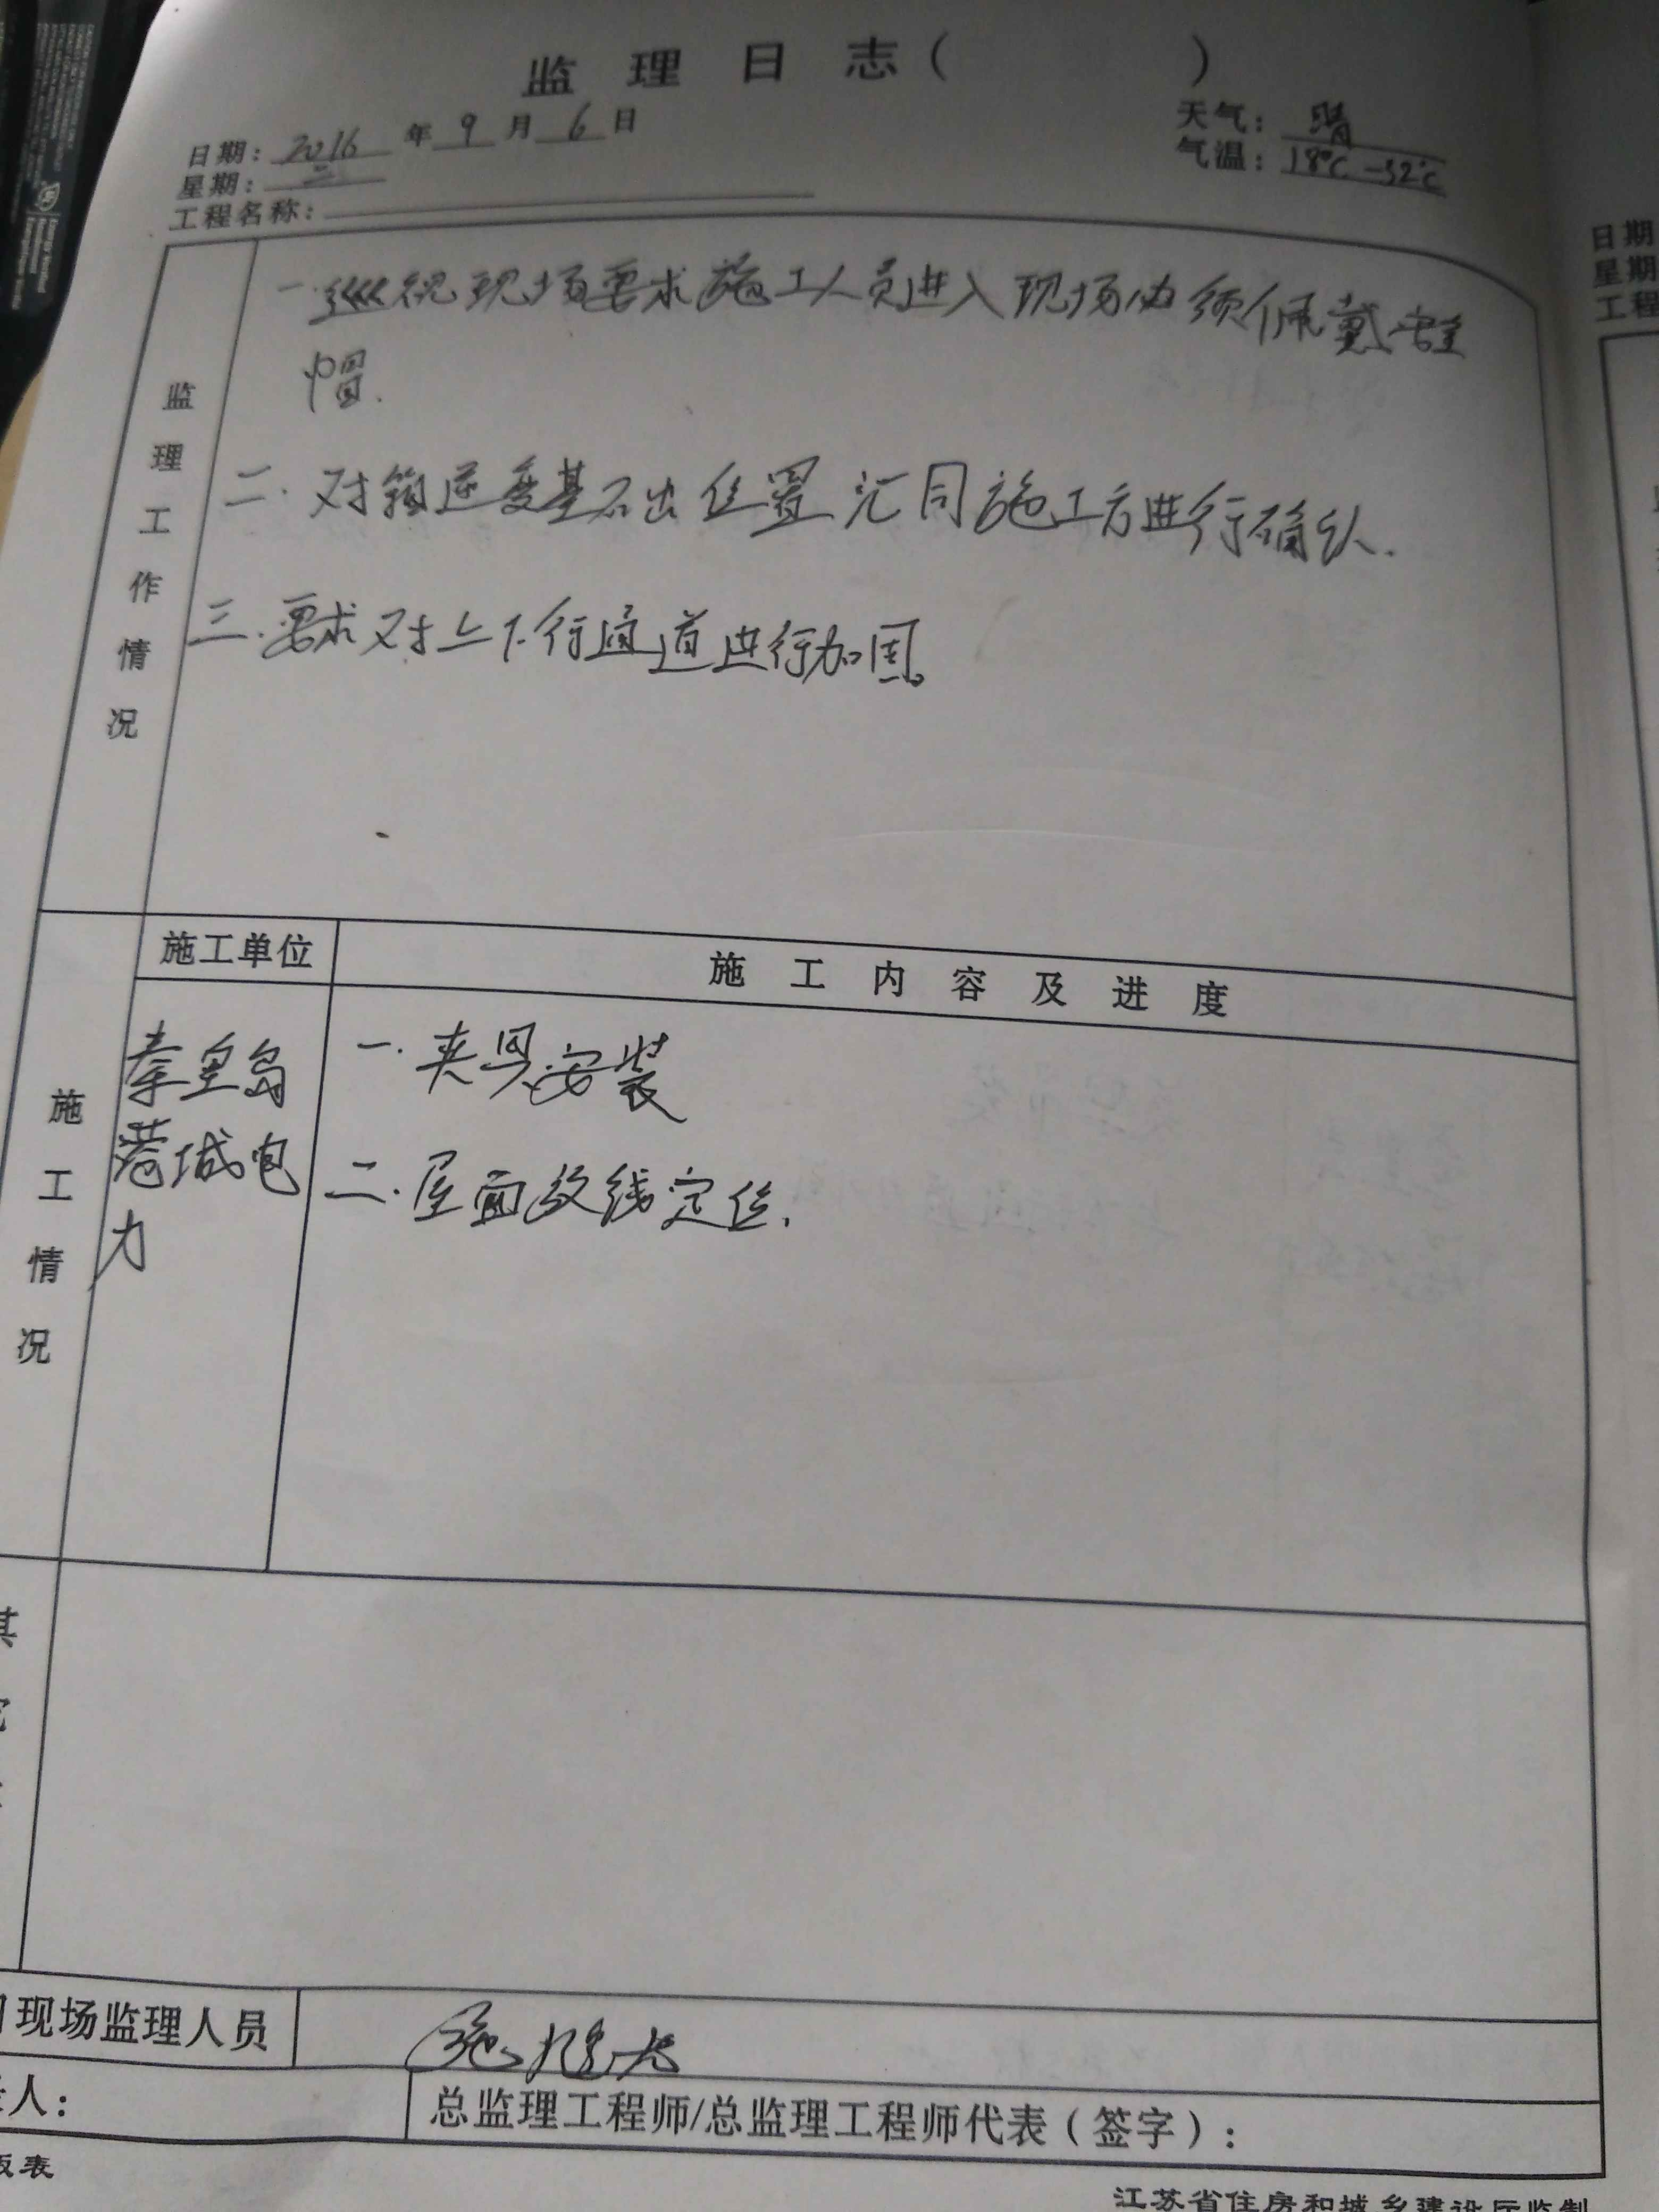 监理日志（ ）
日期：2016年9月6日
天气：晴
星期：二
气温：18℃-32℃
工程名称：
监理工作情况
一.巡视现场要求施工人员进入现场必须佩戴安全
帽.
二.对箱逆变基础位置汇同施工方进行确认.
三.要求对上下行通道进行加固。
施工情况
施工单位
施工内容及进度
秦皇岛
港城电
力
一.夹具安装
二.屋面放线定位.
其
现场监理人员
人：
总监理工程师/总监理工程师代表（签字）：
版表
江苏省住房和城乡建设厅监制
日期
星期
工程